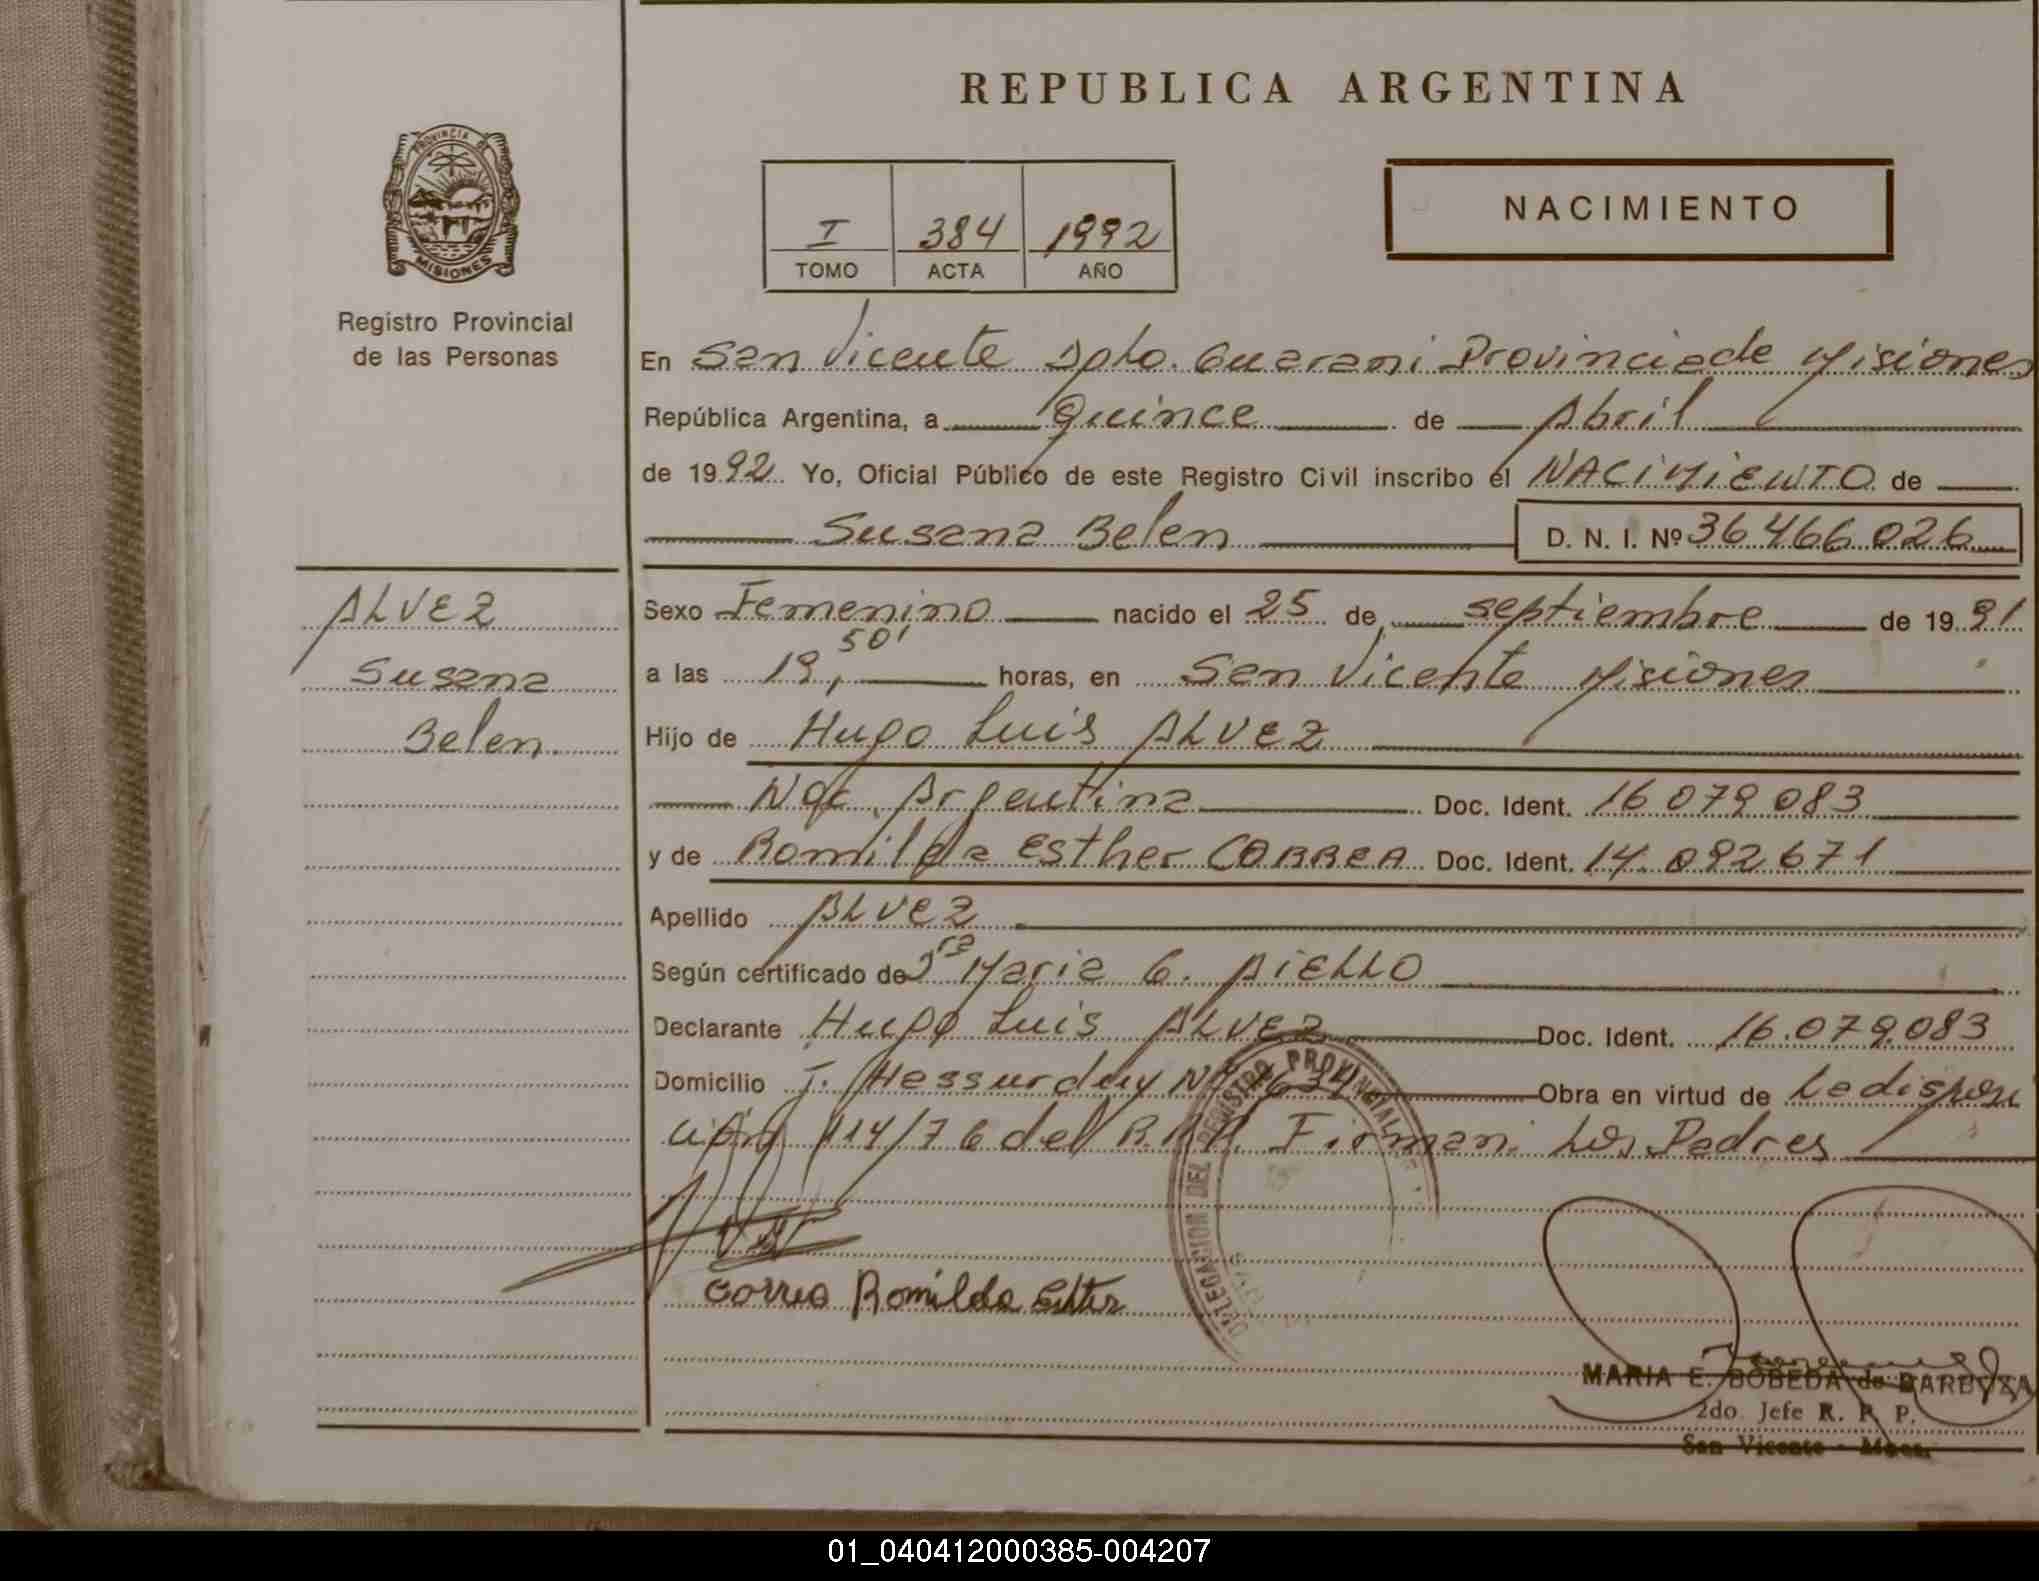 REPUBLICA ARGENTINA
PROVINCIA DE
MISIONES
Registro Provincial
de las Personas
I 384 1992
TOMO ACTA AÑO
NACIMIENTO
En San Vicente Dpto. Guarani Provincia de Misiones
República Argentina, a quince de Abril
de 1992. Yo, Oficial Público de este Registro Civil inscribo el NACIMIENTO de
Susana Belen D. N. I. Nº 36466026
ALVEZ
Susana
Belen
Sexo Femenino nacido el 25 de septiembre de 1991
a las 19,50' horas, en San Vicente Misiones
Hijo de Hugo Luis ALVEZ
Nac. Argentina Doc. Ident. 16079083
y de Romilda Esther CORREA Doc. Ident. 14.092671
Apellido ALVEZ
Según certificado de Maria G. AIELLO
Declarante Hugo Luis ALVEZ Doc. Ident. 16.079.083
Domicilio Obra en virtud de La disposi
ción 114/76 del R.P.P. Firman: Los Padres
DELEGACION DEL REGISTRO PROVINCIAL
Correa Romilda Ester
MARIA E. BOBEDA de BARBOZA
2do. Jefe R. P. P.
San Vicente - Mnes.
01_040412000385-004207